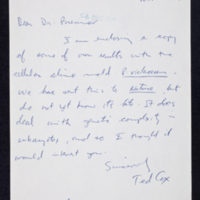 Dear Dr.
I am enclosing a copy
of some of our results with the
cellular slime mold P. violaceum.
We have sent this to nature, but
do not yet know its fate. It does
deal with genetic complexity in
eukaryotes, and so I thought it
would interest you.
Sincerely
Ted Cox